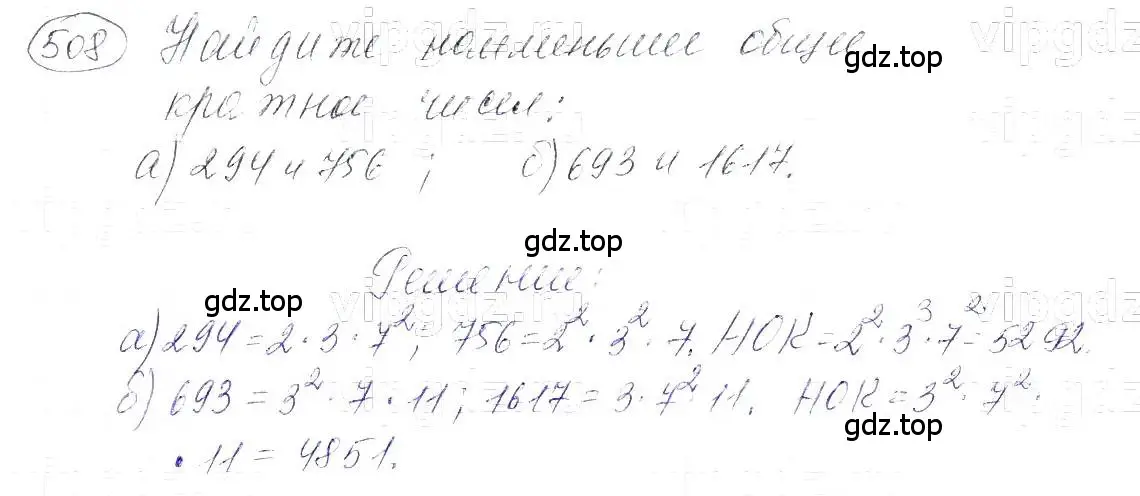 508 Найдите наименьшее общее
кратное чисел:
а) 294 и 756 ; б) 693 и 1617.
gdz.top
gdz.top
Решение:
gdz.top
а) 294 = 2 · 3 · 7²; 756 = 2² · 3² · 7. НОК = 2² · 3³ · 7² = 5292.
б) 693 = 3² · 7 · 11; 1617 = 3 · 7² · 11. НОК = 3² · 7² ·
gdz.top
· 11 = 4851.